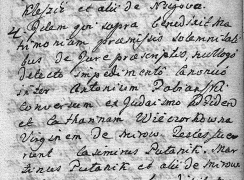 et alii de
4 Idem qui supra benedixit Ma
trimonium præmissis solemnitati
bus de Jure præscriptis, nullogz
detecto Impedimento canonico
inter Antonium
conversum ex Judaismo
et Catharinam Wieczorkowna
Virginem de mirow. Testes fue
runt Casimirus Putanik. Mar
tinus Putanik et alii de mirow.